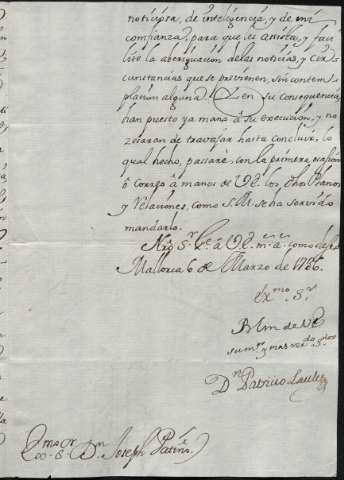 noticiosa, de inteligencia, y de mi
confianza, para que les asista, y faci
lite la aberiguacion delas noticias, y cir
cunstancias que se previenen, sin contem
placion alguna. Y en su consequencia
han puesto ya mano à su execucion, y no
zesaran de travajar hasta concluir, lo
qual hecho, passarè, con la primera ocasion
ò Correo à manos de V.E. los dhos Planos
y Relaciones, como S.M. se ha servido
mandarlo.
Nro Sr. Gue. à V.E. m. a. como deseo
Mallorca 6 de Marzo de 1726.
Exmo. Sr.
BLm de VE
su mor. y mas
Dn. Patricio Laules
Exmo Sr. Dn. Joseph Patiño.